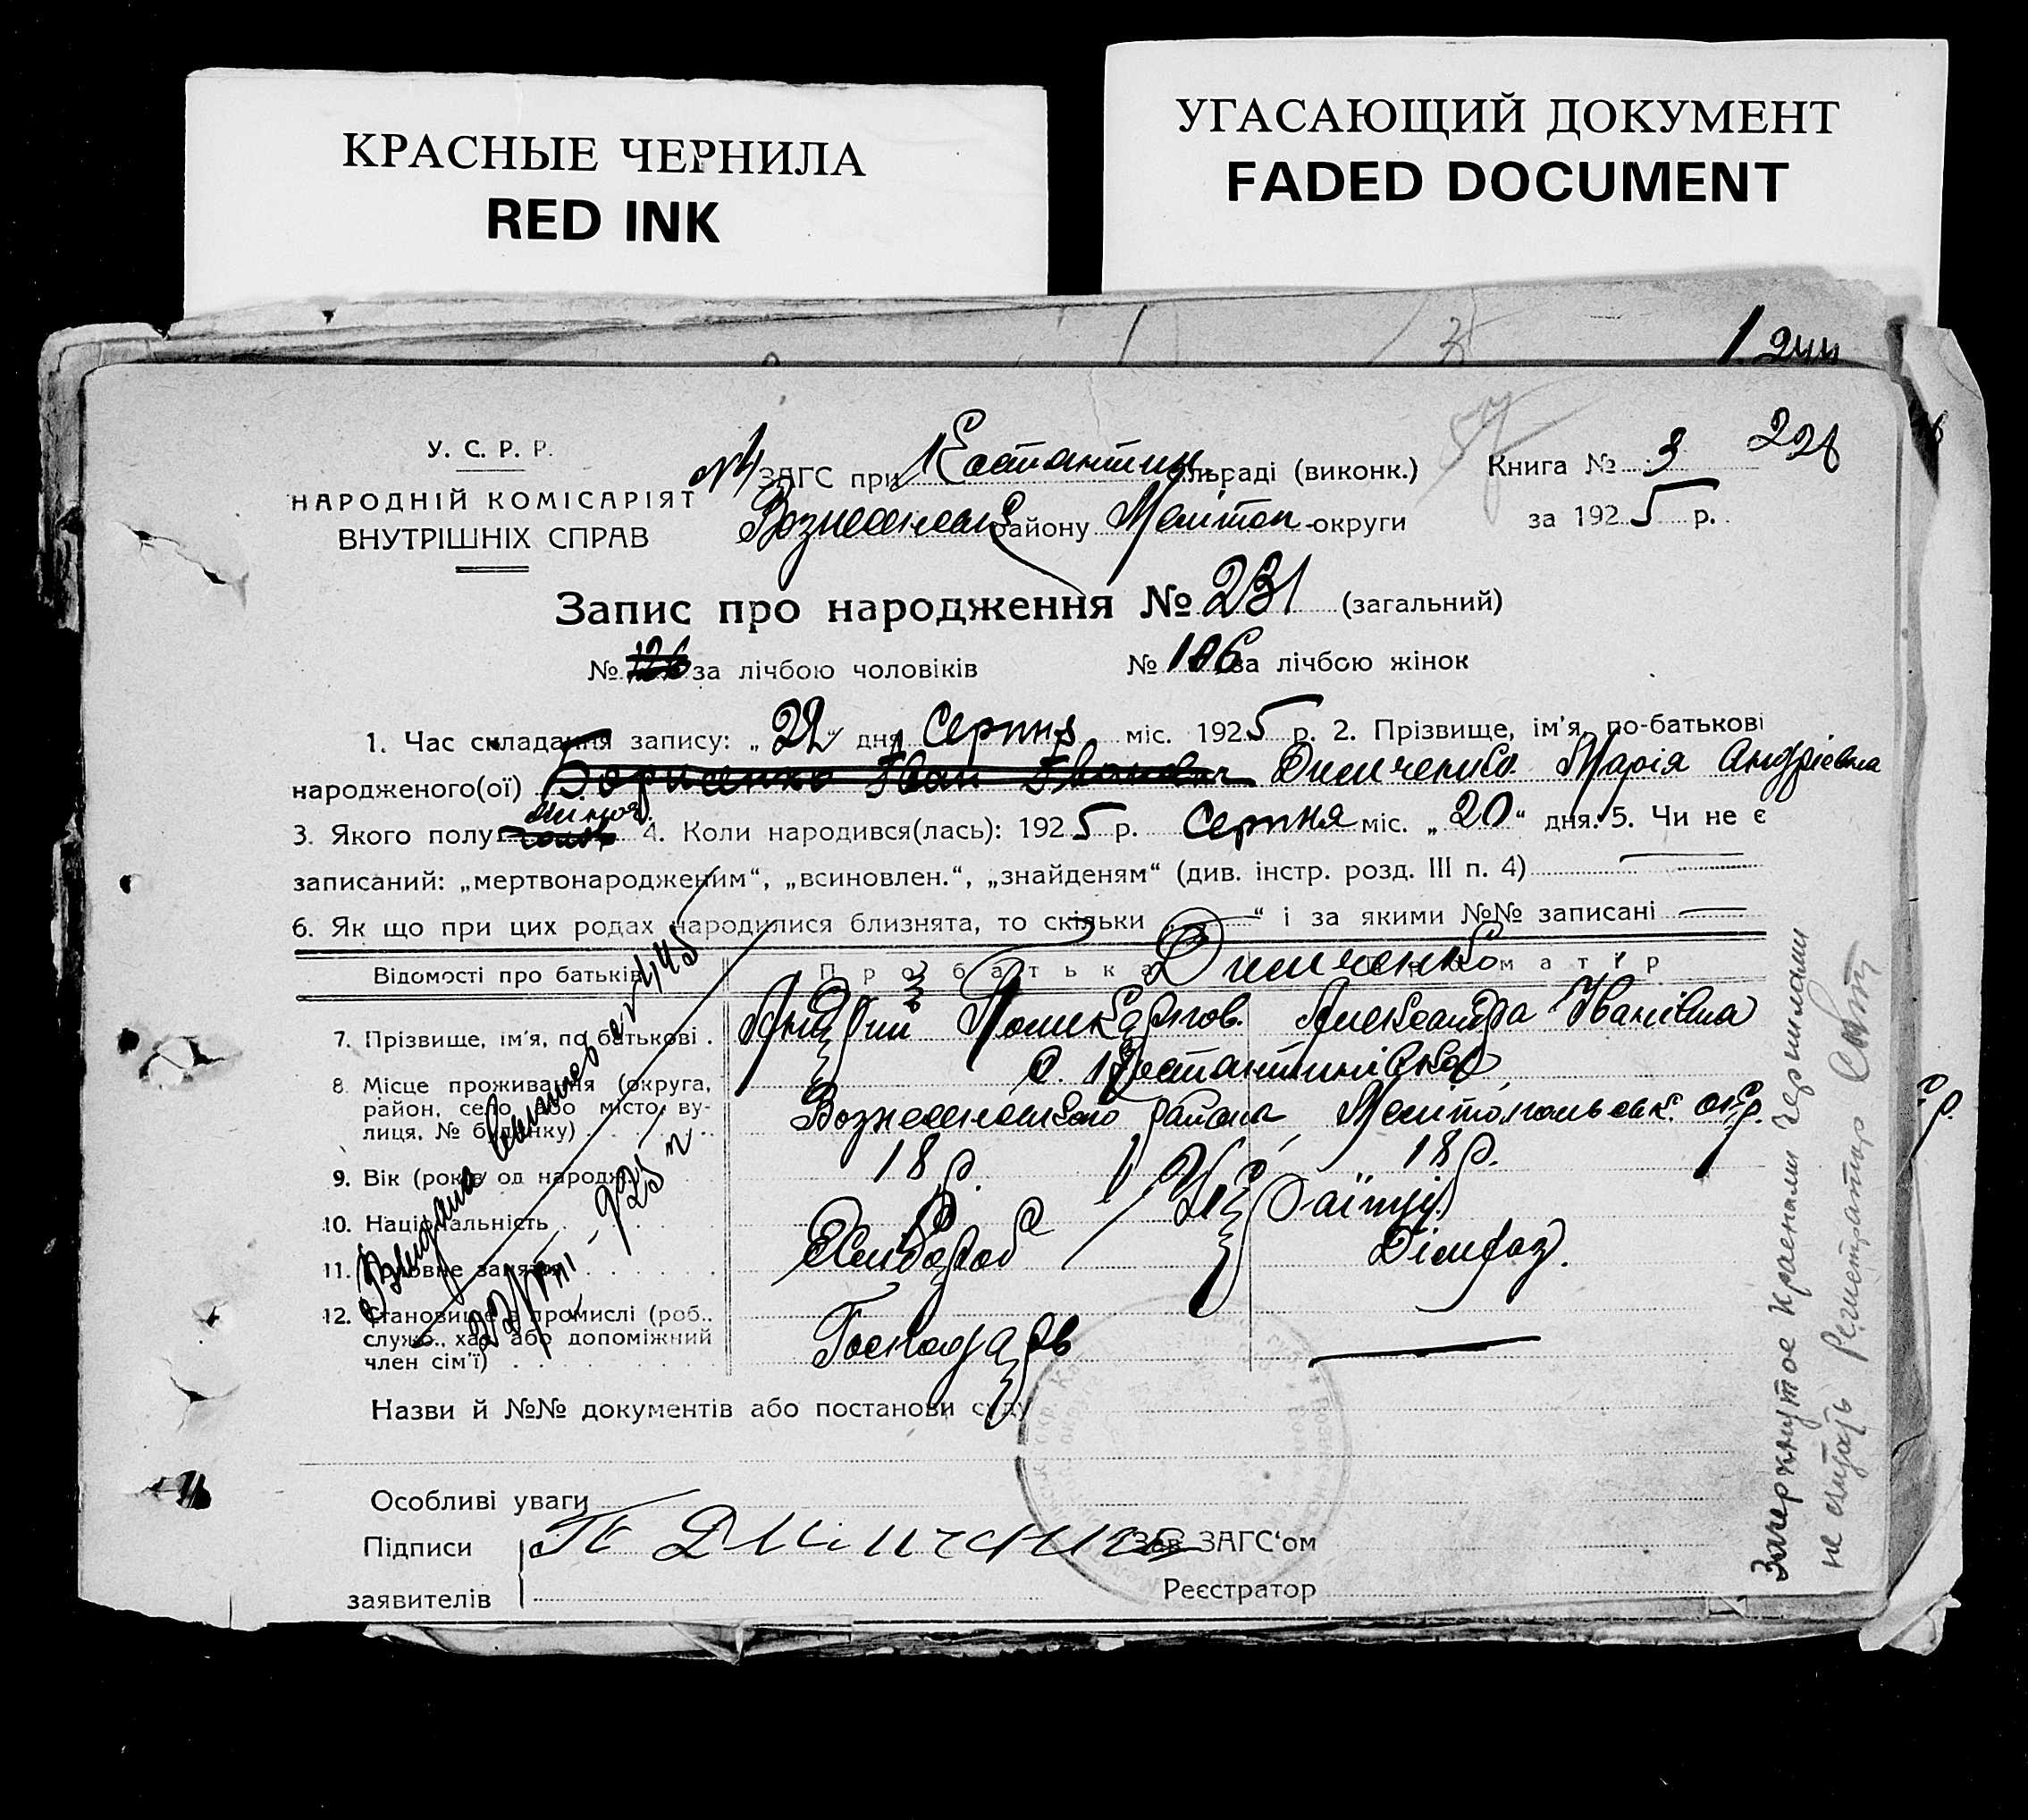 КРАСНЫЕ ЧЕРНИЛА
RED INK
УГАСАЮЩИЙ ДОКУМЕНТ
FADED DOCUMENT
У. С. Р. Р.
НАРОДНІЙ КОМІСАРІЯТ
ВНУТРІШНІХ СПРАВ
ЗАГС при Костантин. сільраді (виконк.) Книга № 3 228
району Мелітоп. округи за 1925 р.
Запис про народження № 231 (загальний)
№ 126 за лічбою чоловіків № 106 за лічбою жінок
1. Час складання запису: „22“ дня Серпня міс. 1925 р. 2. Прізвище, ім'я, по-батькові
народженого(ої) Борисенко Іван Іванович Дмиченко Марія Андрієвна
3. Якого полу жіноч. 4. Коли народився(лась): 1925 р. Серпня міс. „20“ дня. 5. Чи не є
записаний: „мертвонародженим“, „всиновлен.“, „знайденям“ (див. інстр. розд. III п. 4)
6. Як що при цих родах народилися близнята, то скільки „ “ і за якими №№ записані
Відомості про батьків Про батька Про матір
Дмиченко
7. Прізвище, ім'я, по батькові . Андрій Александра Іванівна
8. Місце проживання (округа, район, село або місто, вулиця, № будинку) с. Костантинівка
Вознесенського района Мелітопольськ. окр.
9. Вік (років од народж.) 18 р. 18 р.
10. Національність Українці
11. Головне заняття Хлібороб
12. Становище в промислі (роб., служб., хаз. або допоміжний член сім'ї) Господарь
Назви й №№ документів або постанови суду
Особливі уваги
Підписи Зав. ЗАГС'ом
заявителів Реєстратор
Зачеркнутое красными чернилами
не считать Регистратор